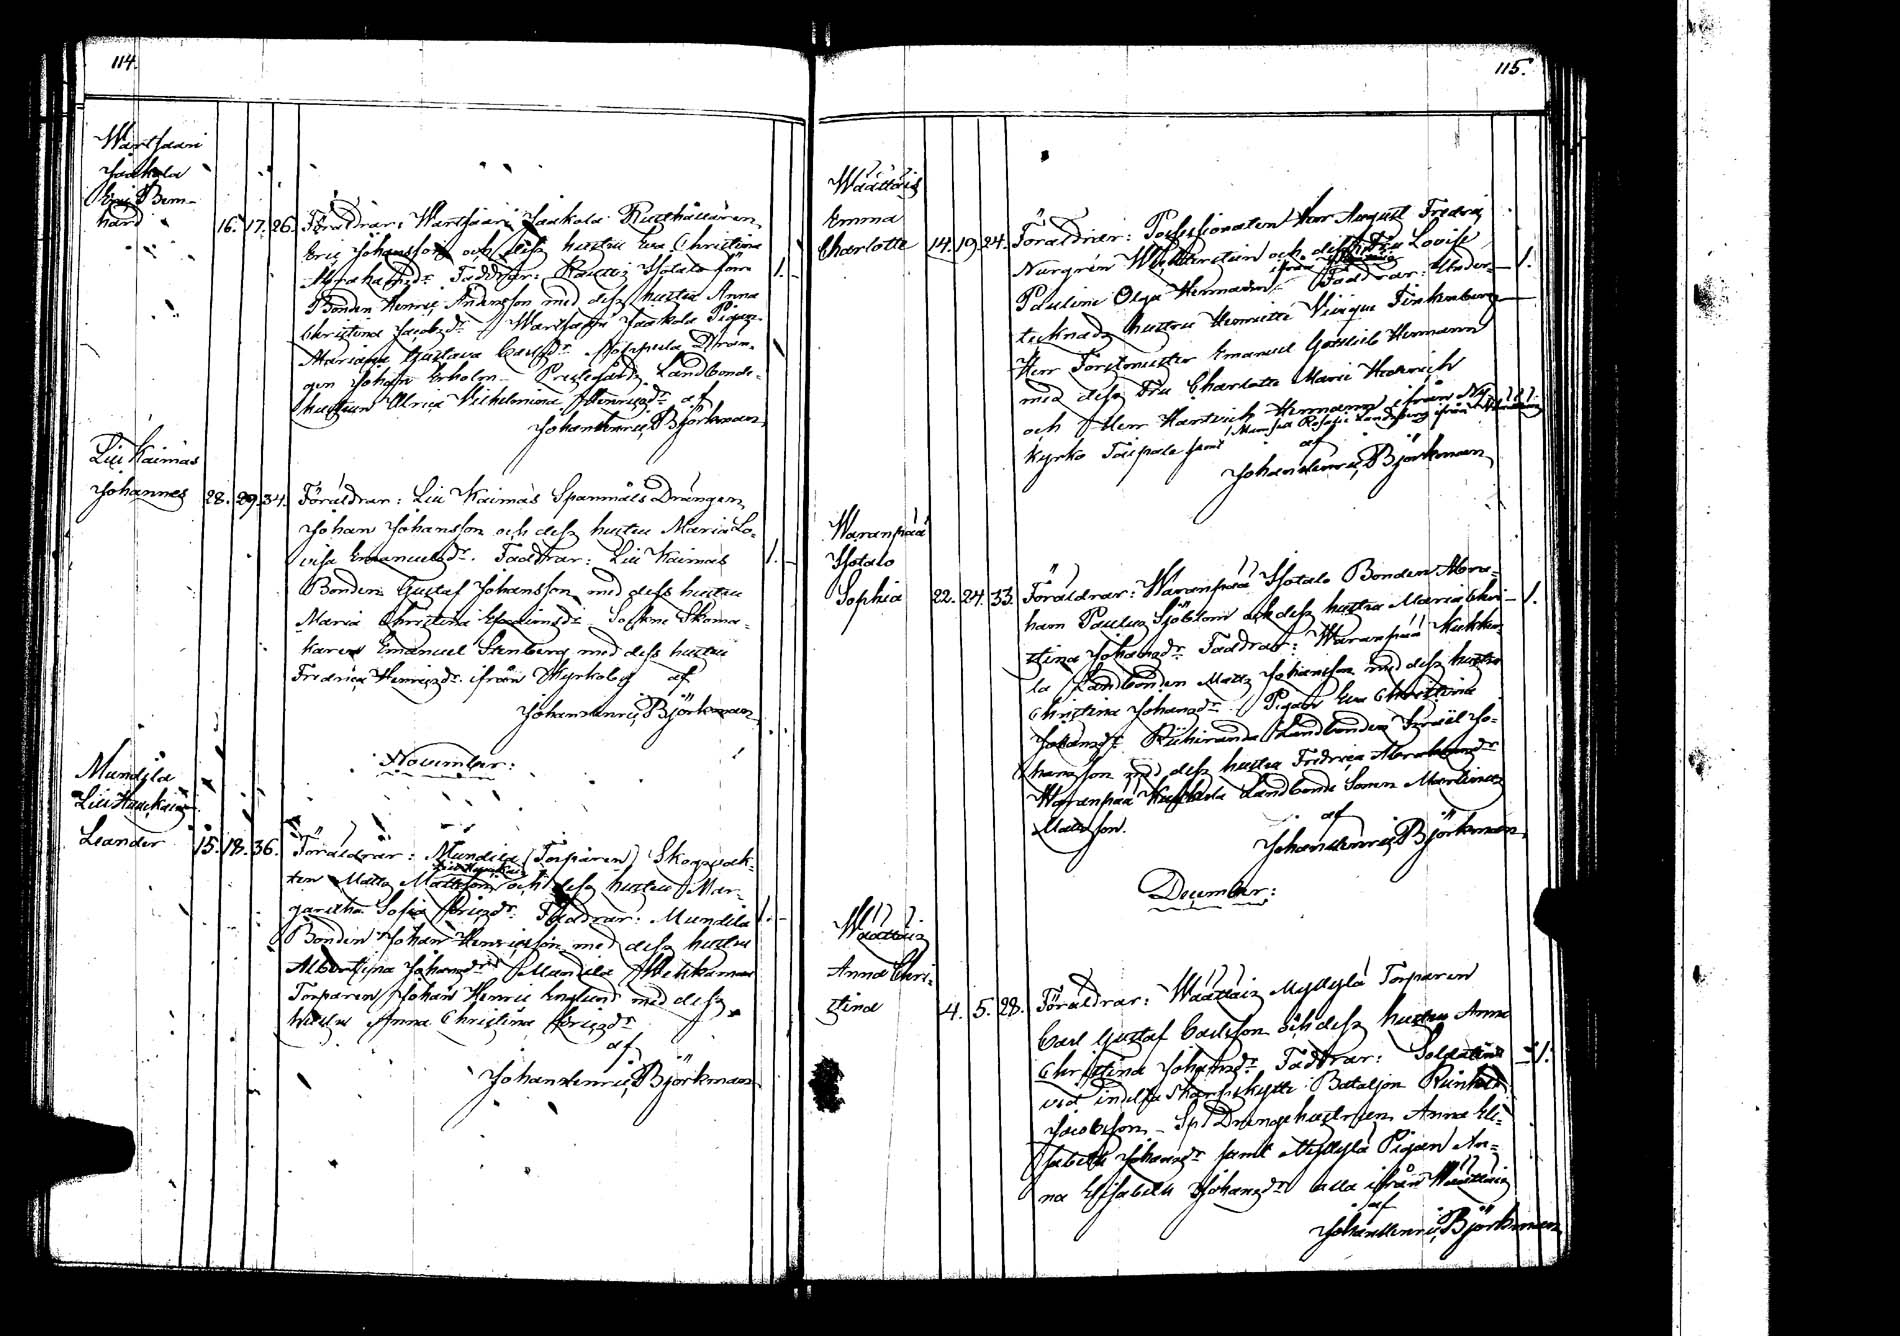 114.
Wartsaari
Jaakola
Eric Bern-
hard 16. 17. 26. Föräldrar: Wartsaari Jaakola Rusthållaren
Eric Johansson och dess hustru Eva Christina
Abrahamsdr. Faddrar: Sjotalo 1.
Bonden Henric Andersson med dess hustru Anna
Christina Jacobsdr. Wartsaari Jaakola Pigan
Gustava Carlsdr. Drän-
gen Johan Erholm Landbonde-
hustrun Ulrica Vilhelmina Henricsdr. af
Johan Henric Björkman
Liu Kaimas
Johannes 28. 29. 34. Föräldrar: Liu Kaimas Spanmåls Drängen
Johan Johansson och dess hustru Maria Lo-
visa Emanuelsdr. Faddrar: Liu Kaimas 1.
Bonden Gustaf Johansson med dess hustru
Maria Christina Sockne Skoma-
karen Emanuel Stenberg med dess hustru
Fredrica Henricsdr. ifrån Kyrkoby af
Johan Henric Björkman
November:
Mundila
Leander 15. 18. 36. Föräldrar: Mundila (Torparen) Skogsvak-
ten Matts Mattsson och dess hustru Mar-
garetha Sofia Ericsdr. Faddrar: Mundila 1.
Bonden Johan Henricsson med dess hustru
Albertina Johansdr. Mundila
Torparen Johan Henric Englund med dess
hustru Anna Christina Ericsdr.
af
Johan Henric Björkman
115.
Wäättäis
Emma
Charlotte 14. 19. 24. Föräldrar: Possessionaten Herr August Fredric
och dess Fru Lovise 1.
Pauline Olga Hermann Faddrar: Under-
tecknads hustru Henriette
Herr Forstmester Emanuel Gottlieb Hermann
med dess Fru Charlotte Marie
och Herr Hartvich Hermann ifrån Ny-
kyrko Taipale samt Mamsell Rosalie
af
Johan Henric Björkman
Waranpää
Sjotalo
Sophia 22. 24. 33. Föräldrar: Waranpää Sjotalo Bonden Abra-
ham Paulus Sjöblom och dess hustru Maria Chri- 1.
stina Johansdr. Faddrar: Waranpää Kukko-
la Landbonden Matts Johansson med dess hustru
Christina Johansdr. Pigan Eva Christina
Johansdr. Riihiranda Landbonden Israel Jo-
hansson med dess hustru Fredrica Abrahamsdr.
Waranpää Kukkola Landbonde Sonen Martinus
Mattsson. af
Johan Henric Björkman
December:
Wäättäis
Anna Chri-
stina 4. 5. 28. Föräldrar: Wäättäis Myllylä Torparen
Carl Gustaf Carlsson och dess hustru Anna
Christina Johansdr. Faddrar: Soldaten 1.
vid indelta Skarpskytte Bataljon Reinhold
Jacobsson Drängehustrun Anna Eli-
sabeth Johansdr. samt Myllylä Pigan An-
na Elisabeth Johansdr. alla ifrån Wäättäis
af
Johan Henric Björkman